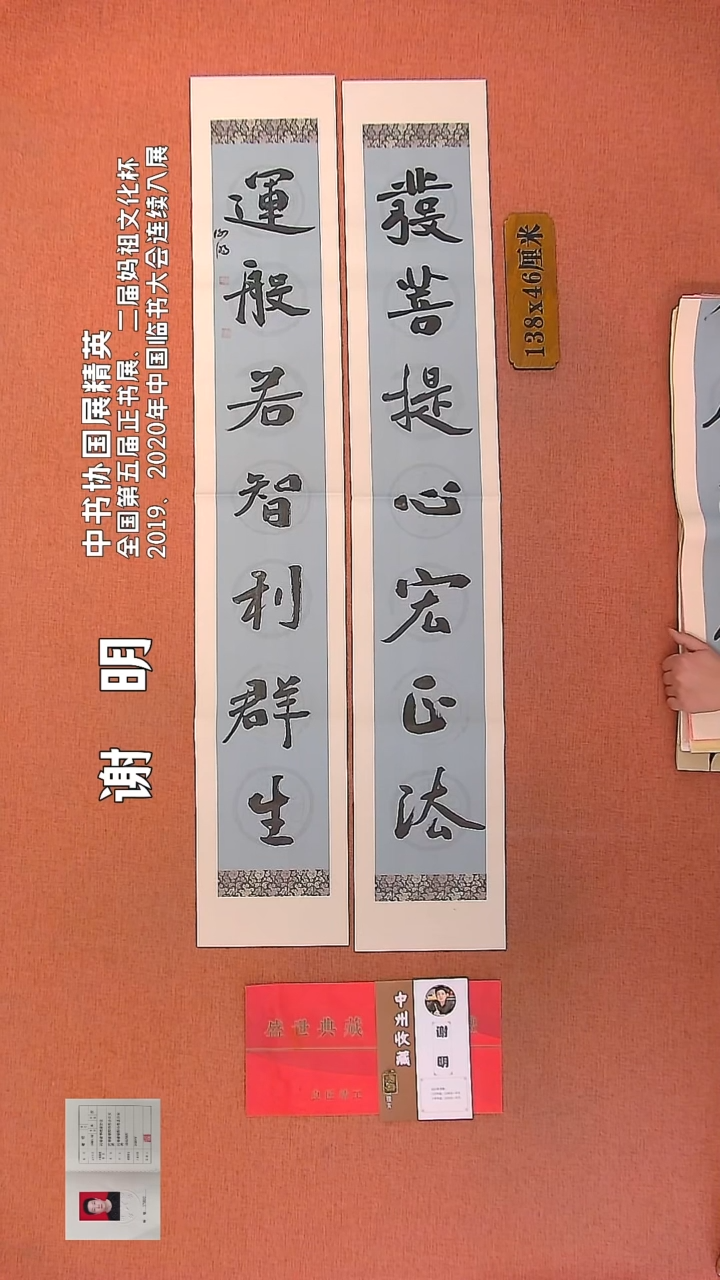 發菩提心宏正法
運般若智利群生
谢明
138x46厘米
中书协国展精英
全国第五届正书展、二届妈祖文化杯
2019、2020年中国临书大会连续入展
谢 明
盛世典藏
中州收藏
谢 明